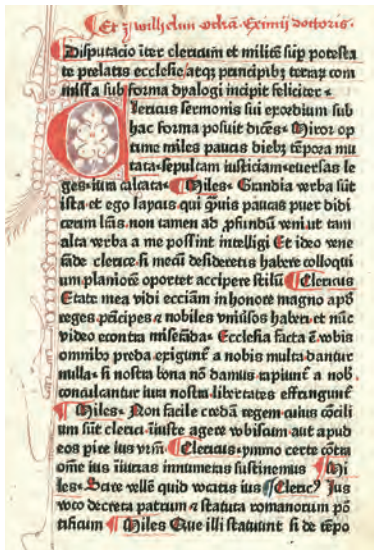 Et ꝫ wilhelmi ockã. Eximij doctoris.
Disputacio iter clericum et militẽ suꝑ potesta
te prelatis ecclesie atqꝫ principibꝫ terraꝝ com
missa sub forma dyalogi incipit feliciter.
Clericus sermonis sui exordium sub
hac forma posuit dicẽs. Miror op
time miles paucis diebꝫ tẽpora mu
tata. sepultam iusticiam. euersas le
ges. iura calcata. Miles. Grandia verba sũt
ista et ego laycus. qui q̃uis paucas puer didi
cerim lr̃as. non tamen ad ꝓfundũ veni ut tam
alta verba a me possint intelligi Et ideo vene
rãde clerice. si mecũ desideretis habere colloqui
um planiorẽ oportet accipere stilũ Clericus
Etate mea vidi eccĩam in honore magno apð
reges. p̃ncipes ⁊ nobiles vniũsos haberi. et nũc
video econtra miserãda. Ecclesia facta ẽ vobis
omnibꝰ preda exigunt᷑ a nobis multa. dantur
nulla. si nostra bona nõ damus rapiunt᷑ a nob̾.
conculcantur iura nostra. libertates effringunt᷑
Miles. Non facile credã regem cuius cõcili
um sũt clerici. iniuste agere vobiscum. aut apud
eos ꝑire ius vr̃m. Clericus. ymmo certe cõtra
om̃e ius iĩurias innumeras sustinemus Mi
les. Scire vellẽ quid vocatis ius Cleric⁹ Jus
voco decreta patrum ⁊ statuta romanorum põ
tificum Miles Que illi statuunt si de tẽpo